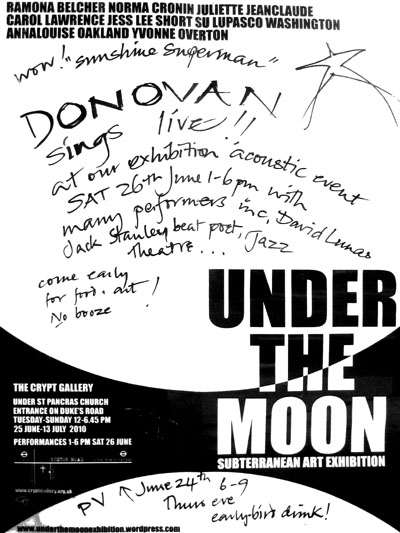 RAMONA BELCHER NORMA CRONIN JULIETTE JEANCLAUDE
CAROL LAWRENCE JESS LEE SHORT SU LUPASCO WASHINGTON
ANNALOUISE OAKLAND YVONNE OVERTON
wow! "sunshine superman"
DONOVAN
sings live!!
at our exhibition acoustic event
SAT 26th June 1-6pm with
many performers inc, David Lunas
Jack Stanley beat poet, Jazz
Theatre...
come early
for food, art!
No booze
UNDER
THE
MOON
SUBTERRANEAN ART EXHIBITION
THE CRYPT GALLERY
UNDER ST PANCRAS CHURCH
ENTRANCE ON DUKE'S ROAD
TUESDAY-SUNDAY 12-6.45 PM
25 JUNE-13 JULY 2010
PERFORMANCES 1-6 PM SAT 26 JUNE
EUSTON ROAD
www.cryptgallery.org.uk
PV ↑ June 24th 6-9
Thurs eve
early-bird drink!
www.underthemoonexhibition.wordpress.com